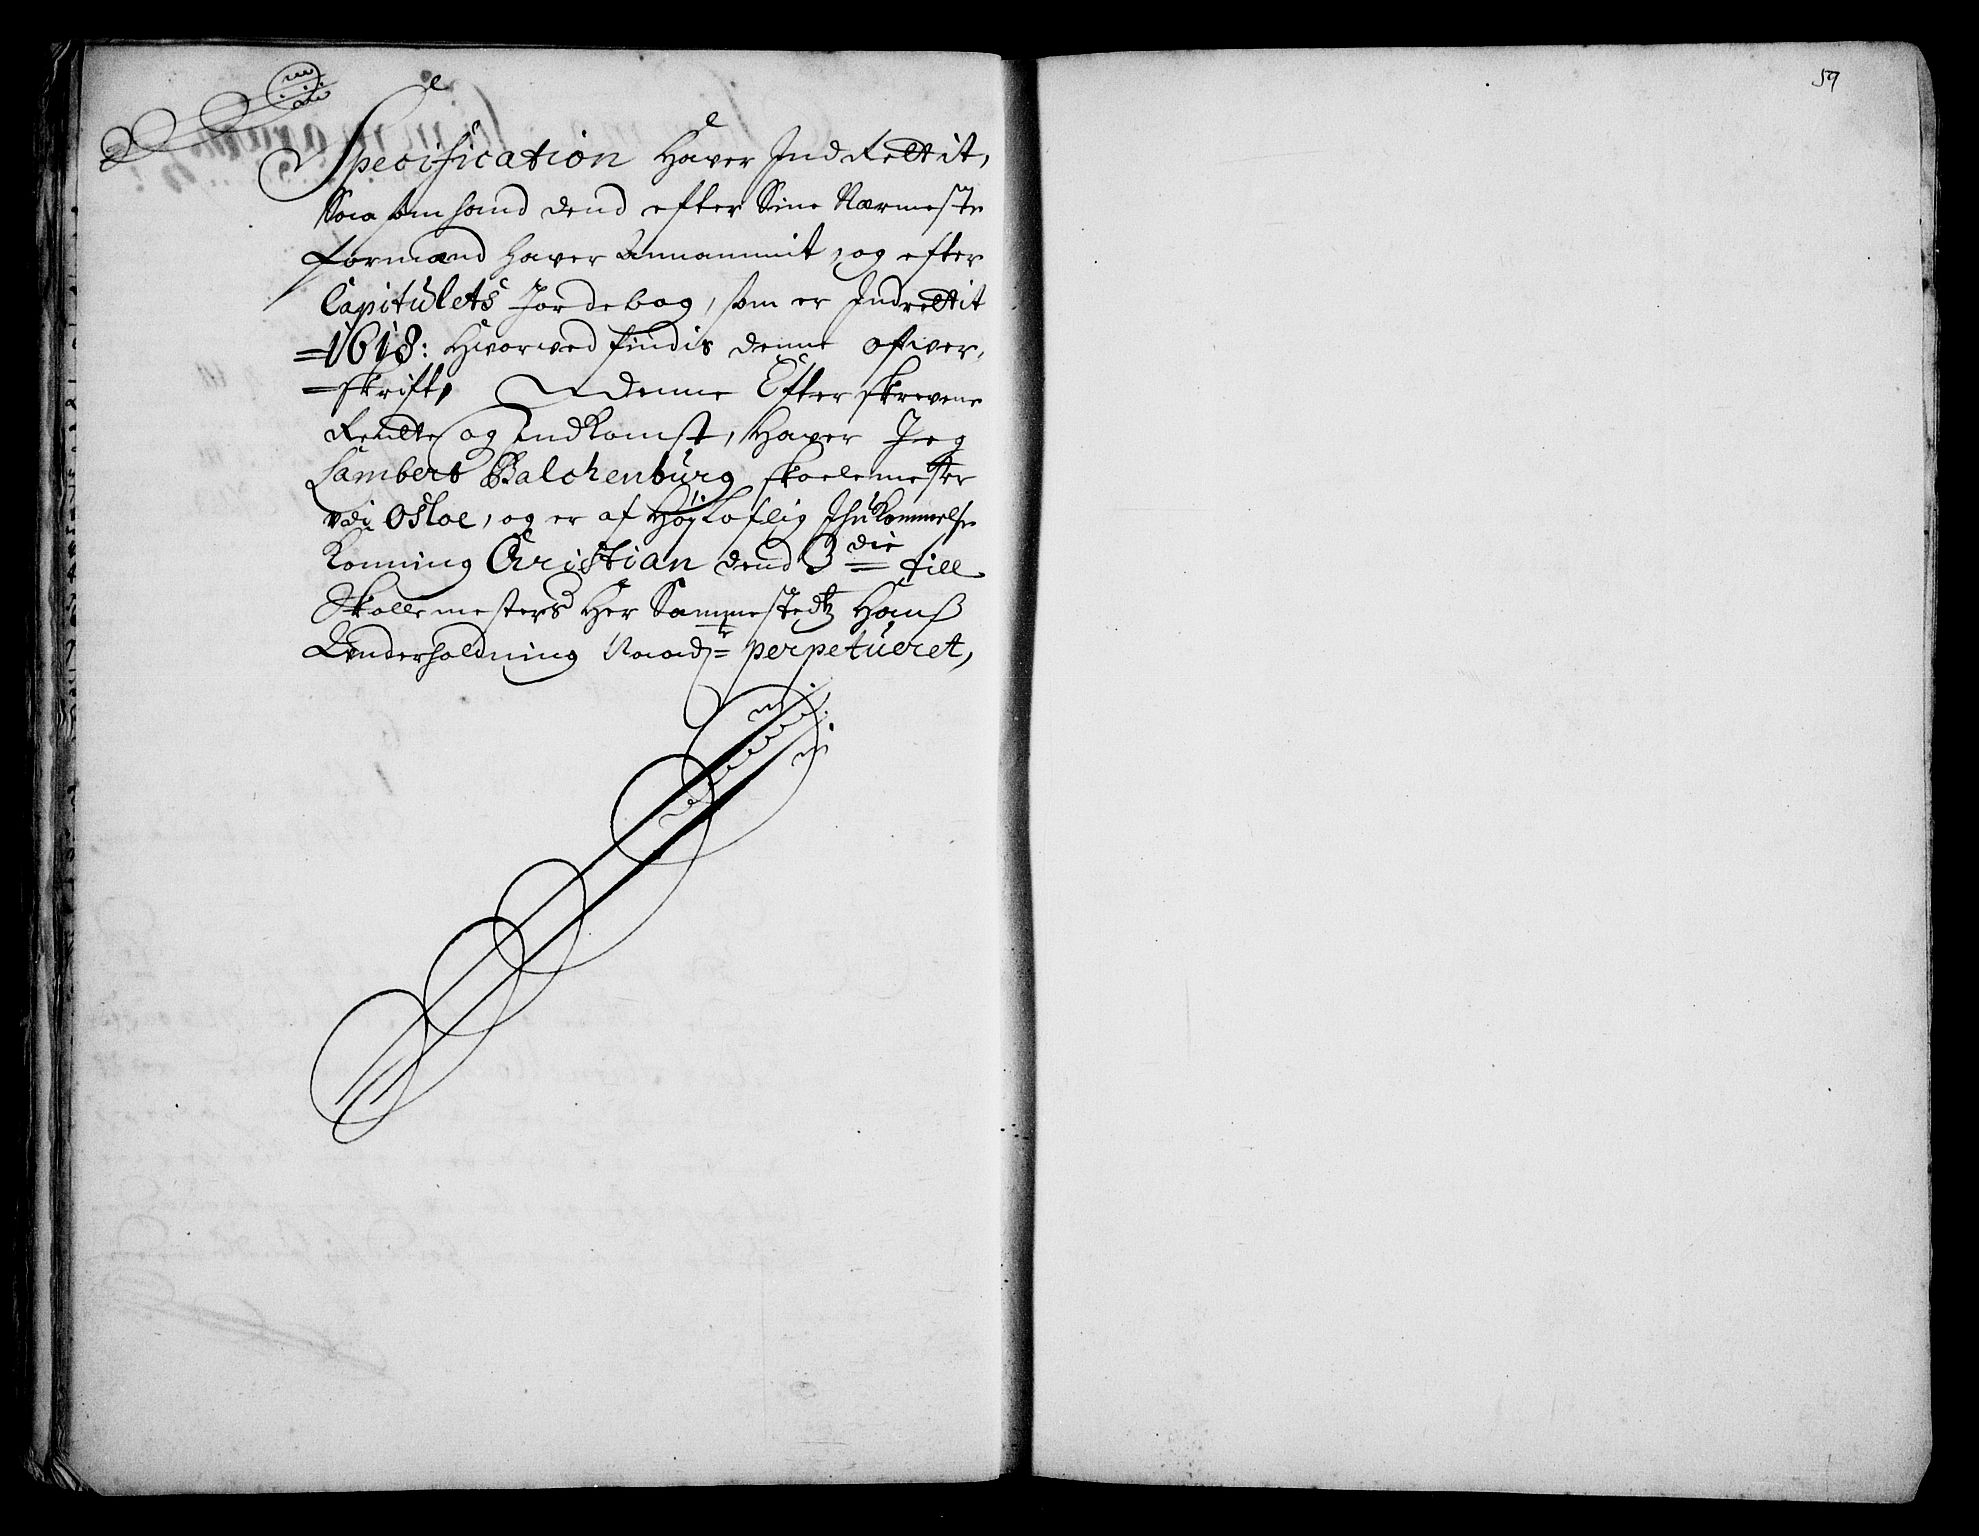 Specification Haver Indrettit,
Saa som hand dend efter Sine Nærmeste
formænd haver Annammit, og efter
Capitulets Jordebog, som er Indrettit
=1618: Hvorved findis denne ofver,
=skrift, denne Efterskrevene
Rendte og Indkomst, Haver Jeg
Lambert Balchenburg skoelemester
vdi Osloe, og er af Høyloflig Ihukommelse
Konning Christian dend 3die till
Skollemesters Her Sammestedtz Hanß
Underholdning Naadr= perpetueret,
59